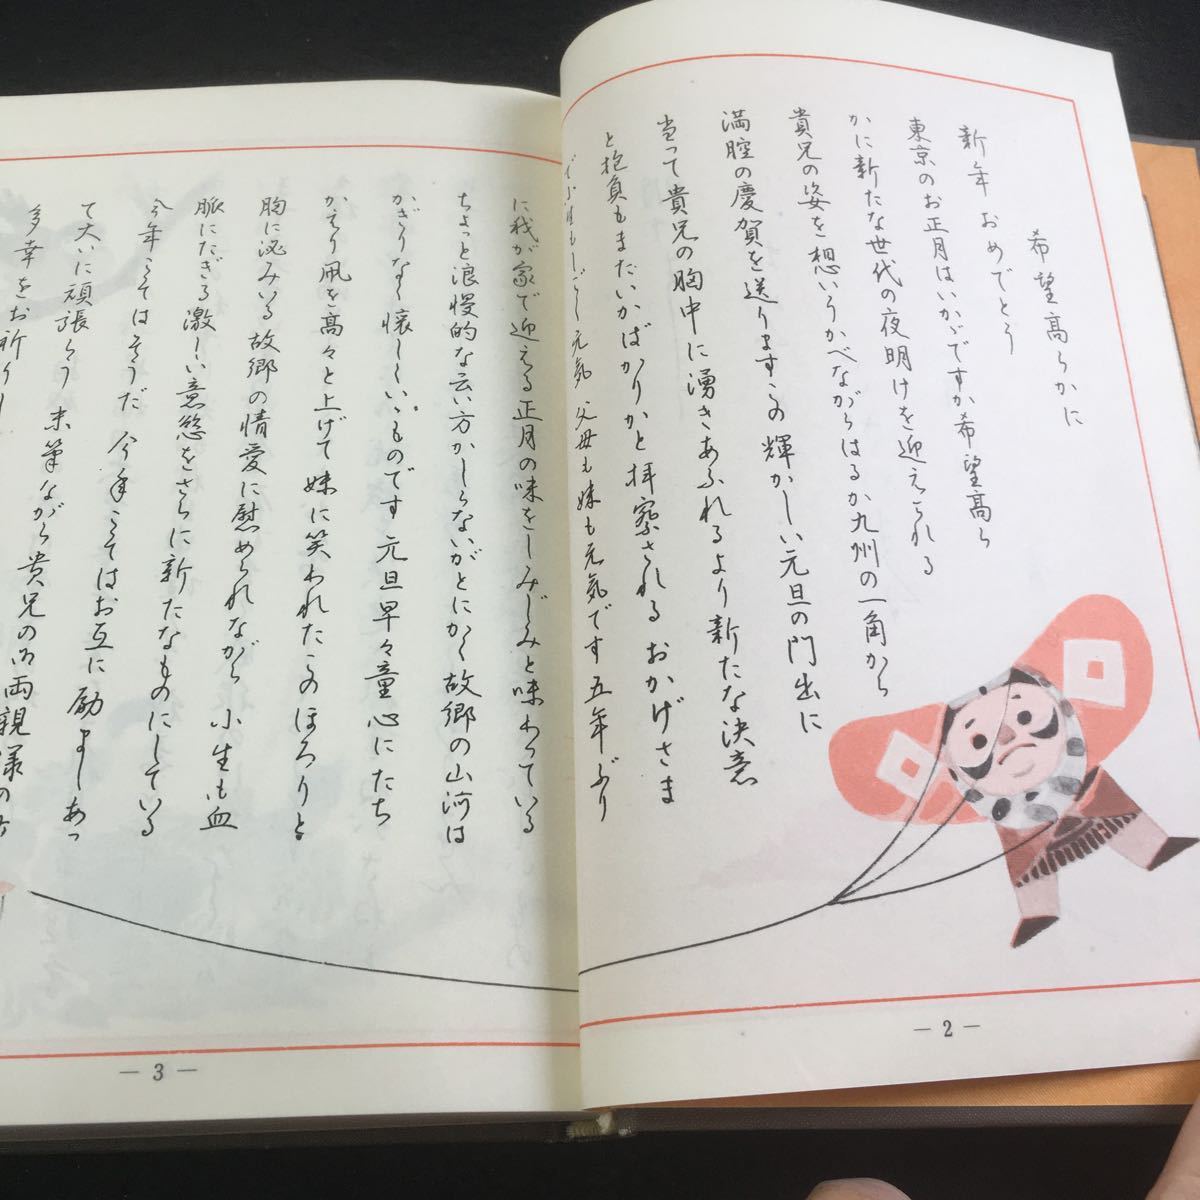 希望高らかに
新年 おめでとう
東京のお正月はいかゞですか希望高ら
かに新たな世代の夜明けを迎えられる
貴兄の姿を想いうかべながらはるか九州の一角から
満腔の慶賀を送りますこの輝かしい元旦の門出に
当って貴兄の胸中に湧きあふれるより新たな決意
と抱負もまたいかばかりかと拝察される おかげさま
で小生も 元気 父母も妹も元気です 五年ぶり
— 2 —
に我が家で迎える正月の味をしみじみと味わっている
ちょっと浪慢的な云い方かしらないがとにかく故郷の山河は
かぎりなく懐しいゝものです 元旦早々童心にたち
かえり凧を高々と上げて妹に笑われたこのほろりと
胸に泌みいる故郷の情愛に慰められながら 小生も血
脈にたぎる激しい意慾をさらに新たなものにしている
今年こそはそうだ 今年こそはお互に励ましあっ
て大いに頑張ろう 末筆ながら貴兄の御両親様の
多幸をお祈り
— 3 —